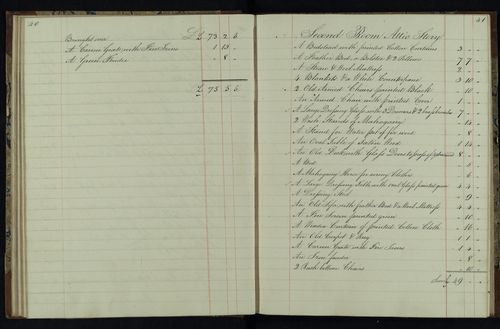 40
Brought over £ 73 2 5
A Carron Grate with Fire Irons 1 13 -
A Green Fender - 8 -
£ 73 5 5
41
Second Room Attic Story
A Bedstead with printed Cotton Curtains 3 - -
A Feather Bed, a Bolster & 2 Pillows 7 7 -
A Straw & Wool Mattress 2 - -
4 Blankets & a White Counterpane 3 10 -
2 Old Armed Chairs painted Black - 10 -
An Armed Chair with printed 1 - -
A Large Dressing Glass with 3 Drawers & 2 7 - -
2 Wash Stands of Mahogany
A Stand for Water - 8 -
An Oval Table of Satin Wood 1 14 -
An Old with Glass Doors 8 - -
A
A Mahogany Horse for airing Clothes - 6 -
A Large Dressing Table with Glass painted green 4 4 -
A Dressing Stool - 9 -
An Old Sofa with feather Bed & Wool Mattress 4 4 -
A Fire Screen painted green - 10 -
A Window Curtain of printed Cotton Cloth - 16 -
An Old Carpet & Rug 1 1 -
A Carron Grate with Fire Irons 1 - -
An Iron fender - 8 -
2 Rush bottom Chairs
49 - -